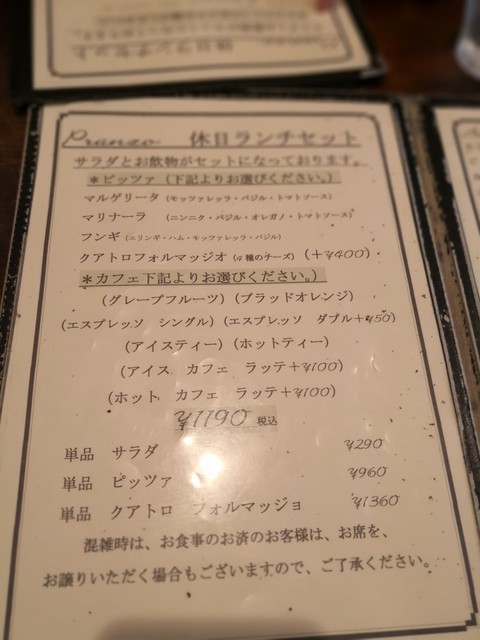 Pranzo 休日ランチセット
サラダとお飲物がセットになっております。
＊ピッツァ（下記よりお選びください。）
マルゲリータ（モッツァレッラ・バジル・トマトソース）
マリナーラ （ニンニク・バジル・オレガノ・トマトソース）
フンギ（エリンギ・ハム・モッツァレッラ・バジル）
クアトロフォルマッジオ（4種のチーズ）（＋¥400）
＊カフェ下記よりお選びください。）
（グレープフルーツ）（ブラッドオレンジ）
（エスプレッソ シングル）（エスプレッソ ダブル＋¥50）
（アイスティー）（ホットティー）
（アイス カフェ ラッテ＋¥100）
（ホット カフェ ラッテ＋¥100）
¥1190 税込
単品 サラダ ¥290
単品 ピッツァ ¥960
単品 クアトロ フォルマッジョ ¥1360
混雑時は、お食事のお済のお客様は、お席を、
お譲りいただく場合もございますので、ご了承ください。